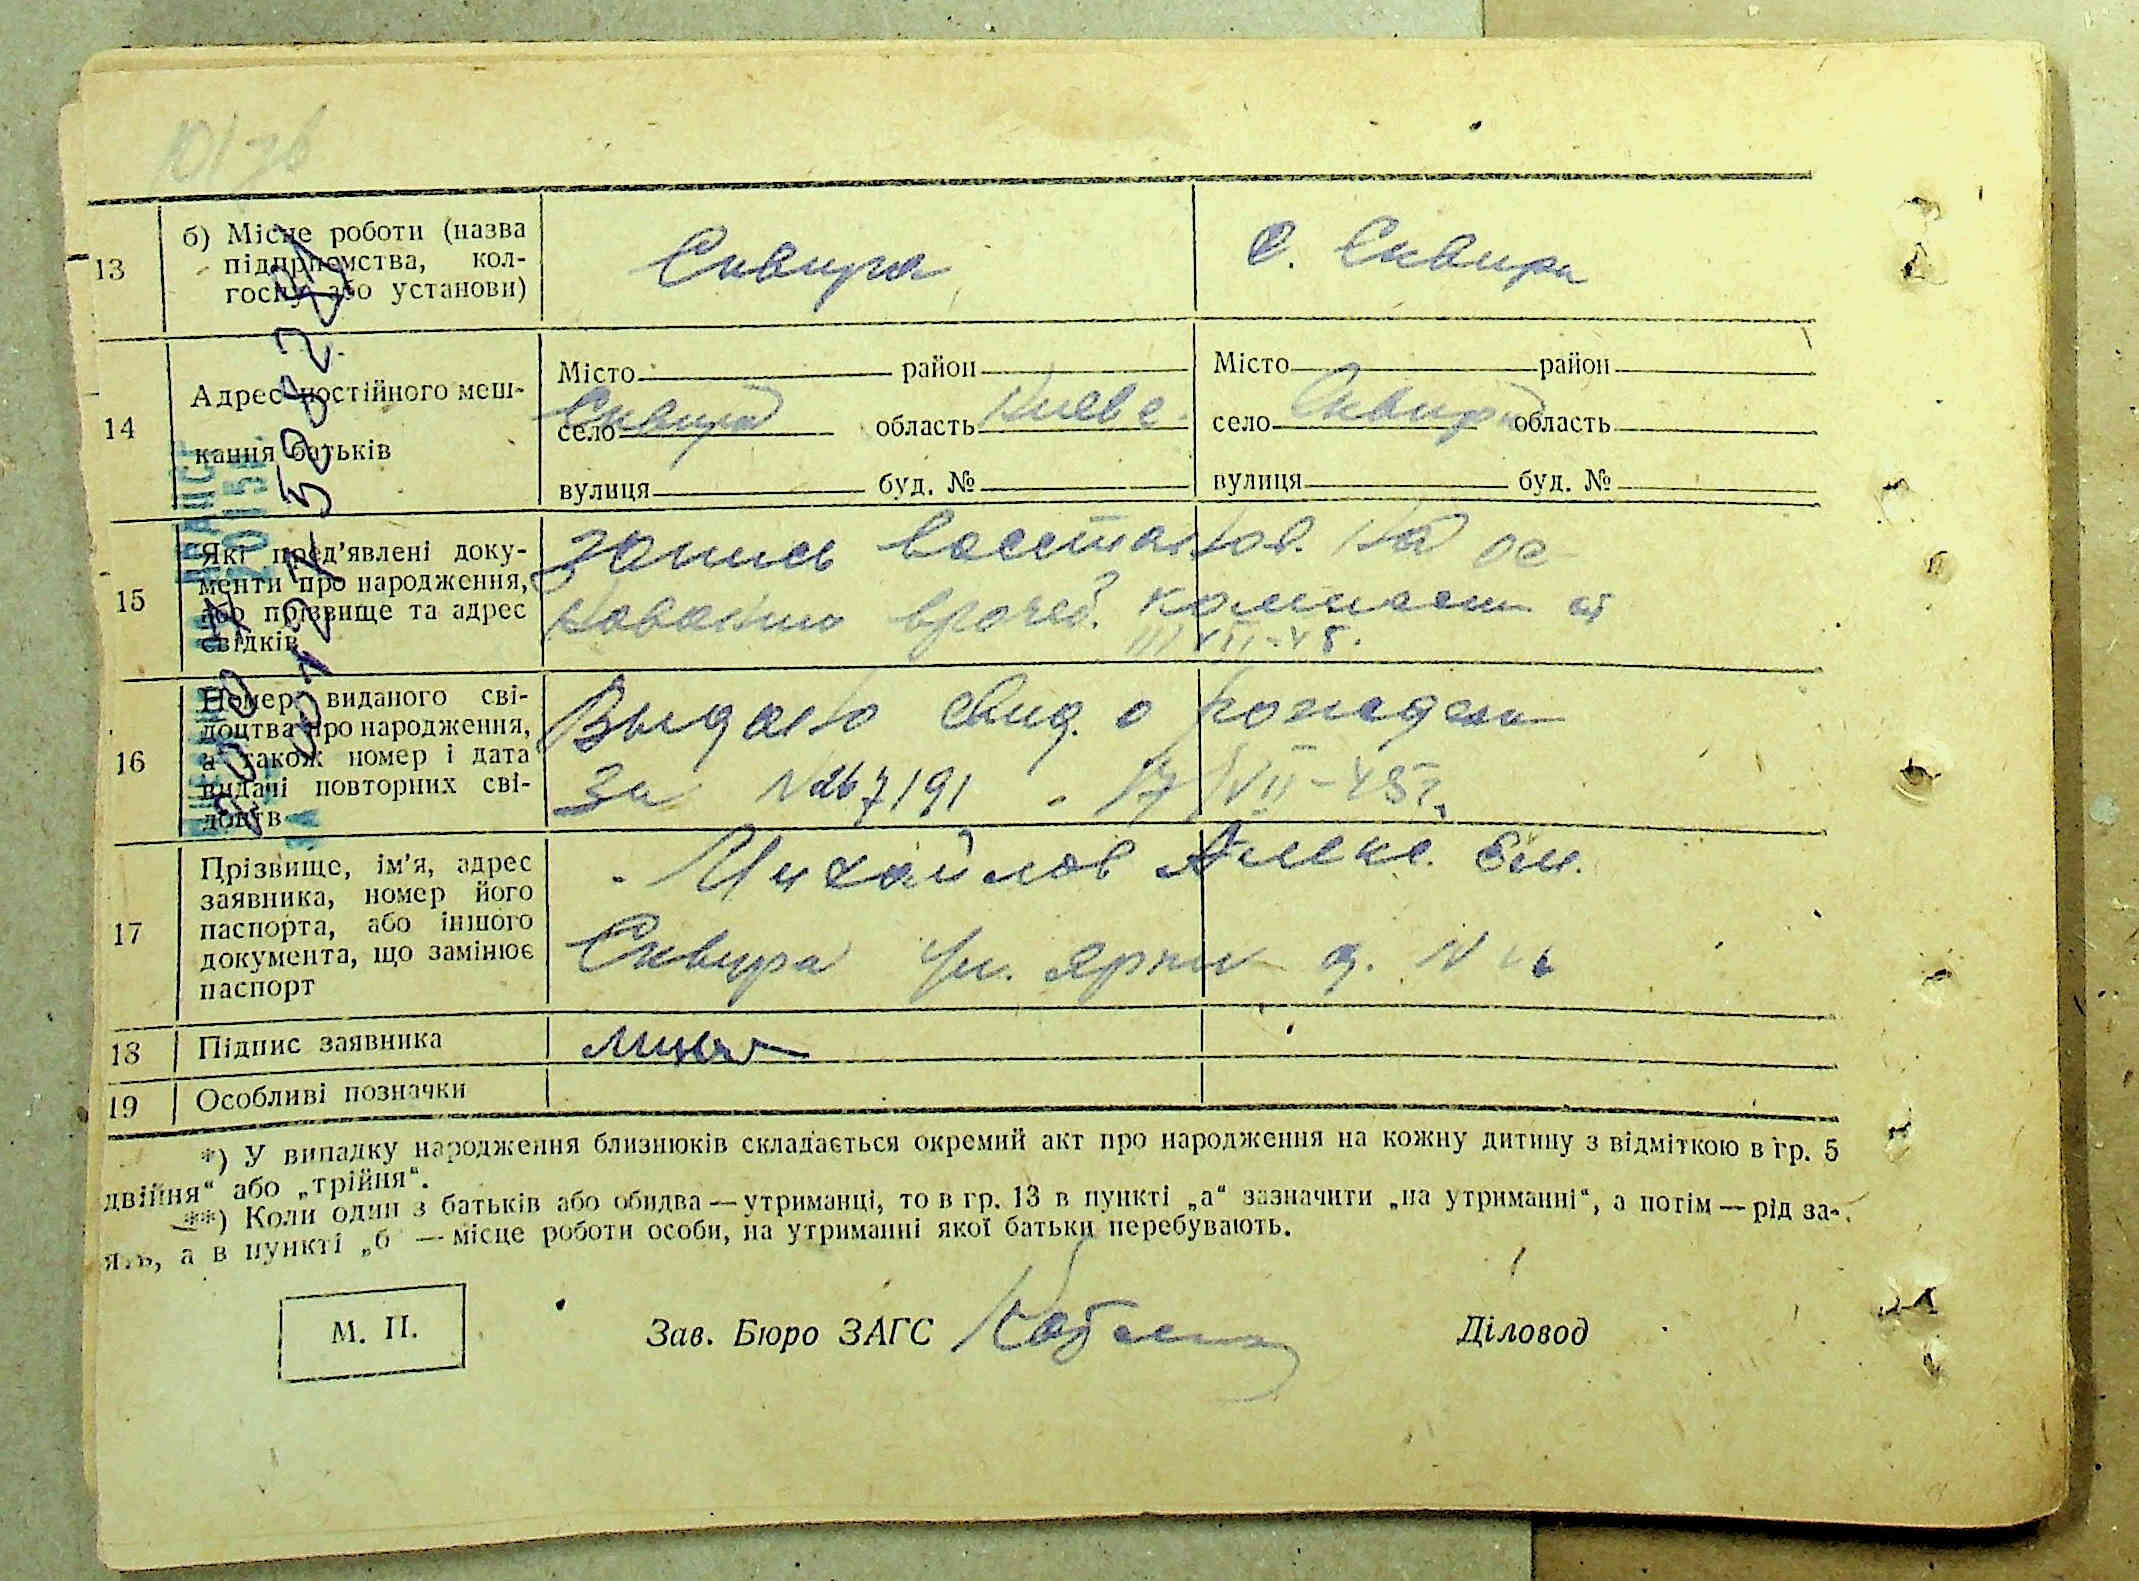 13
б) Місце роботи (назва
підприємства, кол-
госпу або установи)
Сквира
с. Сквира
14
Адрес постійного меш-
кання батьків
Місто район
Сквира Киевс.
село область
вулиця буд. №
Місто район
село Сквира область
вулиця буд. №
15
Які пред’явлені доку-
менти про народження,
або прізвище та адрес
свідків
Запись восстанов. На ос
новании врачеб. комиссии от
16
Номер виданого сві-
доцтва про народження,
а також номер і дата
видачі повторних сві-
доцтв
Выдано свид. о рожден
за 17/VII-45г.
17
Прізвище, ім’я, адрес
заявника, номер його
паспорта, або іншого
документа, що замінює
паспорт
Михайлов Алекс. Ем.
Сквира ул. д. N
18
Підпис заявника
19
Особливі позначки
*) У випадку народження близнюків складається окремий акт про народження на кожну дитину з відміткою в гр. 5
двійня“ або „трійня“.
**) Коли один з батьків або обидва — утриманці, то в гр. 13 в пункті „а“ зазначити „на утриманні“, а потім — рід за-
а в пункті „б — місце роботи особи, на утриманні якої батьки перебувають.
М. П.
Зав. Бюро ЗАГС
Діловод